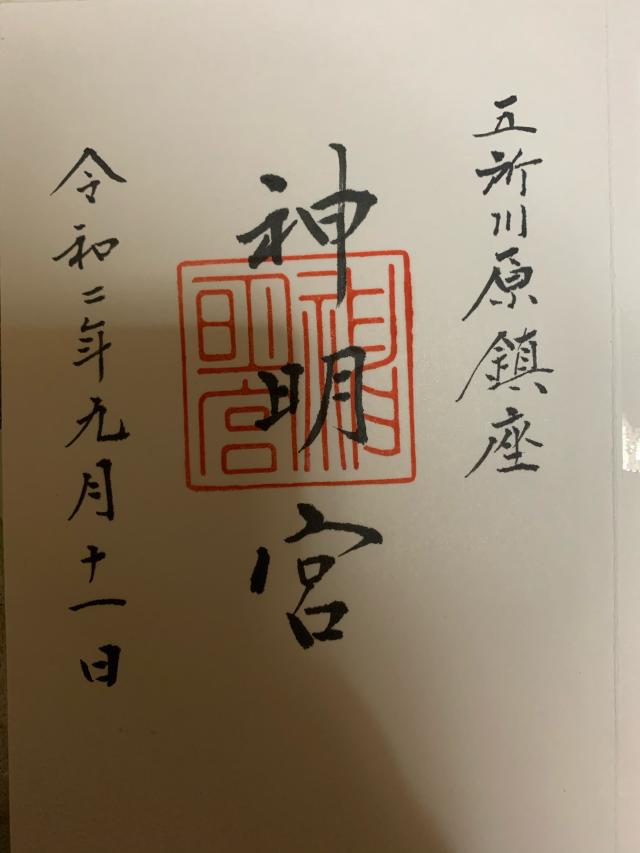 五所川原鎮座
神明宮
神明宮
令和二年九月十一日